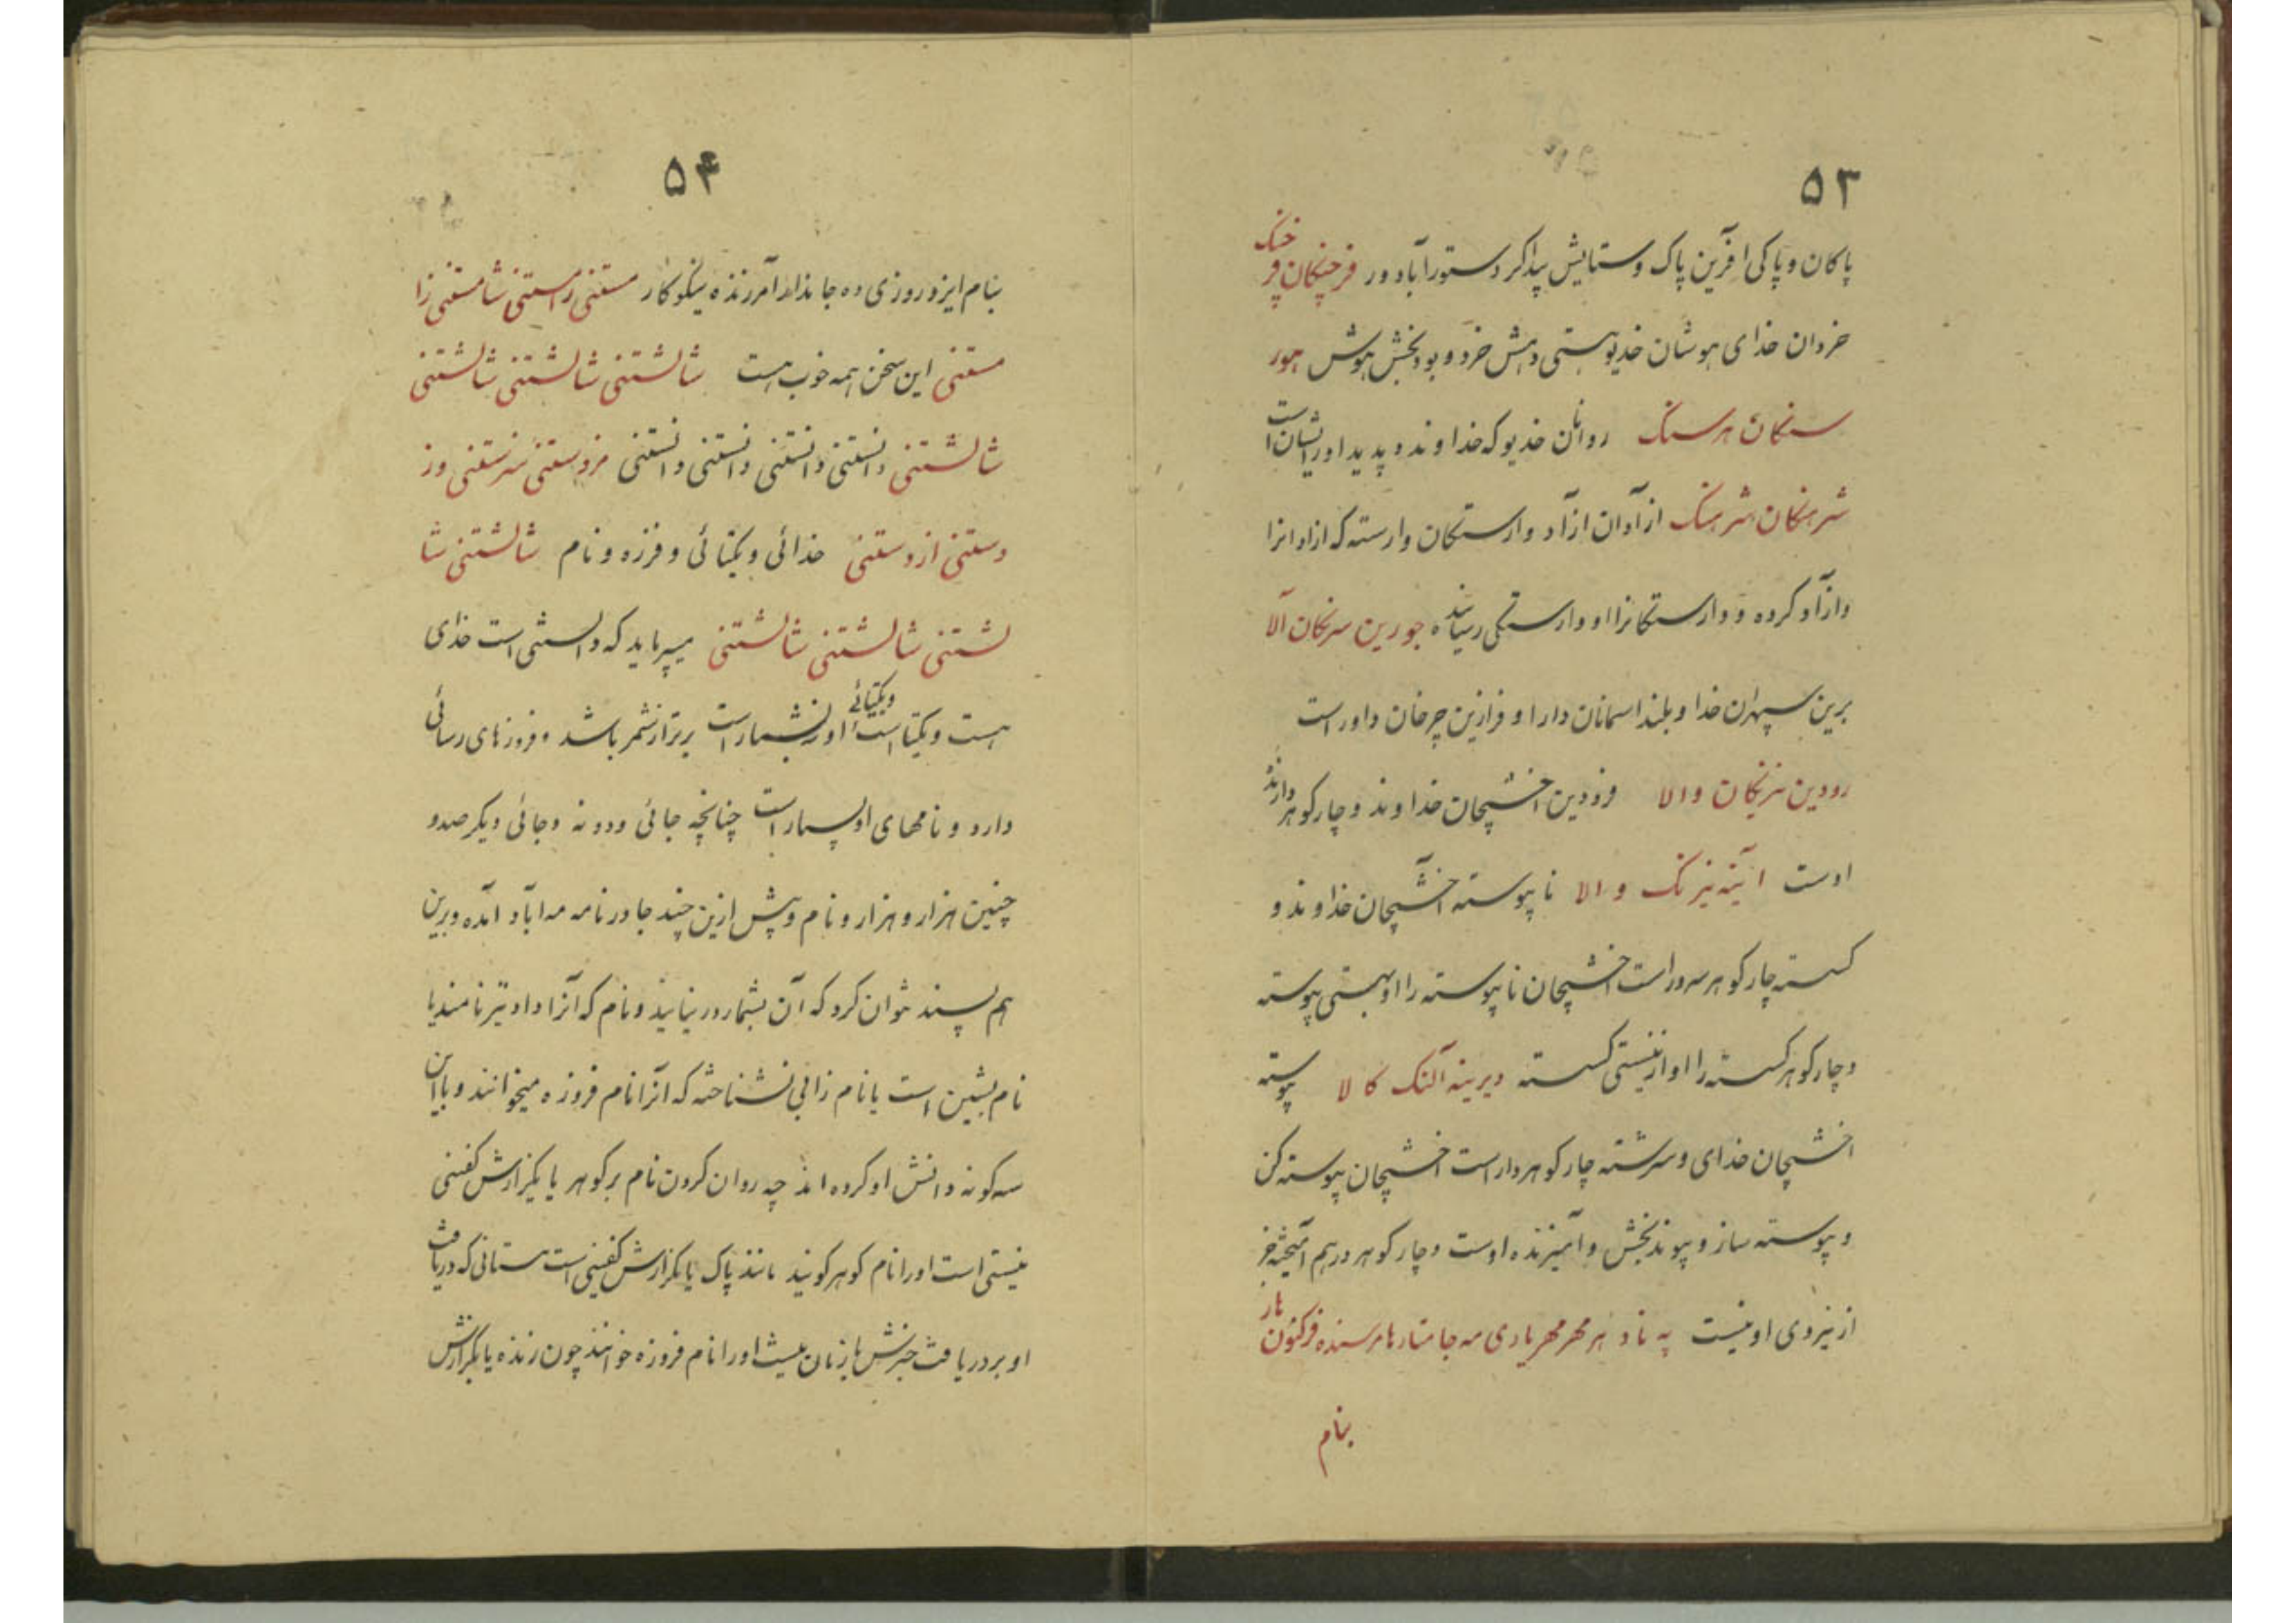 ۵۳
پاکان و پاکی آفرین پاک و ستایش پیداکر دستور آباد ور فرجنکان فر
خنک
خردان خدای هوشان خدیو هستی دهش خرد و بود بخش هوش هور
سنکان هرسنک روانان خدیو که خداوند و پدید اور ایشان است
شرهنکان شرهنک ازآدان ازآد وارستکان وارسته که ازادانرا
وازآد کرده و وارستکانرا او وارستکی رسانیده جورین سرنکان آلا
برین سپهران خدا و بلند اسمانان دارا و فرازین چرخان داور است
رودین نیرنکان والا فرودین اخشیجان خداوند و چار کوهر دارنده
اوست ائینه نیرنک والا ناپیوسته اخشیجان خداوند و
کسسته چار کوهر سرور است اخشیجان ناپیوسته را او بهستی پیوسته
و چار کوهر کسسته را او از نیستی کسسته دیرینه آلنک کالا پیوسته
اخشیجان خدای و سرشته چار کوهر دار است اخشیجان پیوسته کن
و پیوسته ساز و پیوند بخش و آمیزنده اوست و چار کوهر درهم آمیخته جز
از نیروی او نیست په ناد هر مهر مهریادی مه جامتار هامرسنده فرکنون
هار
بنام
۵۴
بنام ایزد روزی ده جاندار آمرزنده نیکوکار مستنی راستنی شامستنی زا
مستنی این سخن همه خوب است شالشتنی شالشتنی شالشتنی
شالشتنی دانستنی دانستنی دانستنی دانستنی فرو ستنی سرستنی وز
دستنی از دستنی خدائی و یکتائی و فرزه و نام شالشتنی شا
لشتنی شالشتنی شالشتنی میپرماید که دانستنی است خدای
و یکتائی
هست و یکتا است او نه بشمار است برتر از شمر باشد و فروزهای رسائی
دارد و نامهای او بسیار است چنانچه جائی ودو نه و جائی دیکر صدو
چنین هزار و هزار و نام و پیش ازین چند جا در نامه مه آباد آمده و برین
هم پسند نتوان کرد که آن بشمار در نیایند و نام که آنرا داد تیر نامند یا
نام بشین است یا نام زابی نشناخته که آنرا نام فروزه میخوانند و با این
سه کونه دانش او کرده اند چه روان کردن نام برکوهر یا بکزارش کفتنی
نیستی است اورا نام کوهر کویند مانند پاک یا بکزارش کفتنی است ستانی که دریافت
او بر دریافت جزش بازنان نیست اورا نام فروزه خوانند چون زنده یا بکزارش